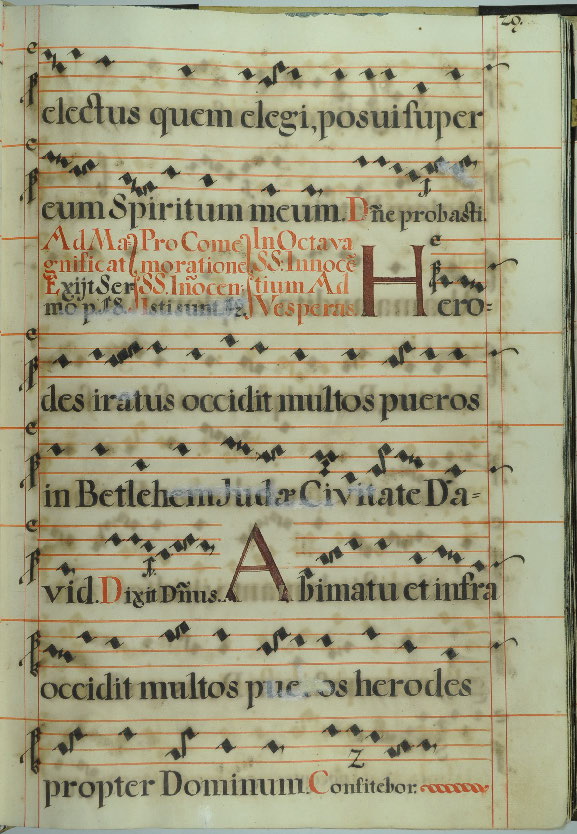 29.
electus quem elegi, posui super
eum Spiritum meum. Dñe probasti.
Ad Ma
gnificat
Exijt Ser
mo p. 18.
Pro Come
moratione
SS. Iñocen
Isti sunt
In Octava
SS. Innocē
tium Ad
Vesperas
Hero-
des iratus occidit multos pueros
in Betlehem Judæ Civitate Da=
vid. Dixit Dñus. A bimatu et infra
occidit multos pueros herodes
propter Dominum. Confitebor.